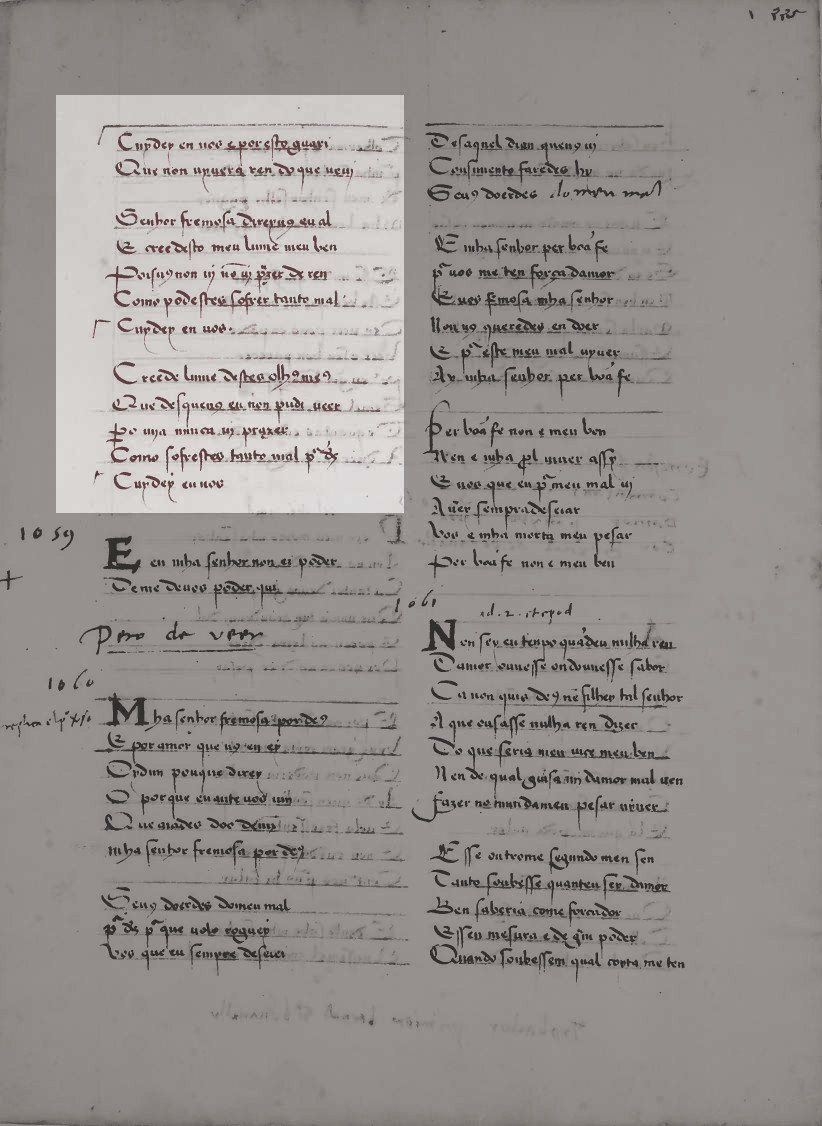 Cuydey en uos e por esto guari
Que non uyuera ren do que ueui
Senhor fremosa direyuꝯ eu al
E creedesto meu lume meu ben
non ui nō ui p̃zer de ren
Como podestes sofrer tanto mal
Cuydey en uos.
Creede lume destes olhꝯ meꝯ
Que desqueuꝯ eu non pudi ueer
Pero uia nunca ui prazer
Como sofrestes tanto mal p̃ d̃s
Cuydey en uos
1059
E eu mha senhor non ei poder
De me deuos poder qui
Pero de veer
1060
Mha senhor fremosa por deꝯ
E por amor que uꝯ eu ey
Oydun pouque direy
O porque euante uos uin
Que aiades doo
mha senhor fremosa por deꝯ
Seuꝯ doerdes do meu mal
p̃ d̃s p̃ que uolo roguey
Vos que eu sempre deseiei
Desaquel dian queuꝯ ui
Consimento faredes hy
Seuꝯ doerdes do meu mal
E mha senhor per boa fe
p̃ uos me ten força damor
E uos fr̃mosa mha senhor
Non uꝯ queredes en doer
E p̃ este meu mal uyuer
Ay mha senhor per boa fe
Per boa fe non e meu ben
Nen e mha prol uiuer assy
E uos que eu p̃ meu mal ui
Auer sempra deseiar
Vos e mha morte meu pesar
Per boa fe non e meu ben
1061
Non sey eu tenpo quādeu nulha ren
Damor ouuesse ondouuesse sabor
Ca non quis deꝯ nē filhey tal senhor
A que ousasse nulha ren dizer
Do que seria meu uiçe meu ben
Nen de qual guisa mi damor mal uen
Fazer no mundameu pesar uiuer
Esse outrome segundo meu sen
Tanto soubesse quanteu sey damor
Ben saberia come forçador
E sen mesura e de gr̃m poder
Quando soubessem qual coyta me ten